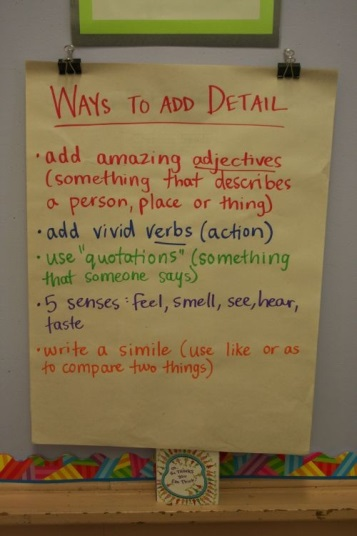 WAYS TO ADD DETAIL
• add amazing adjectives
(something that describes
a person, place or thing)
• add vivid verbs (action)
• use "quotations" (something
that someone says)
• 5 senses: feel, smell, see, hear,
taste
• write a simile (use like or as
to compare two things)